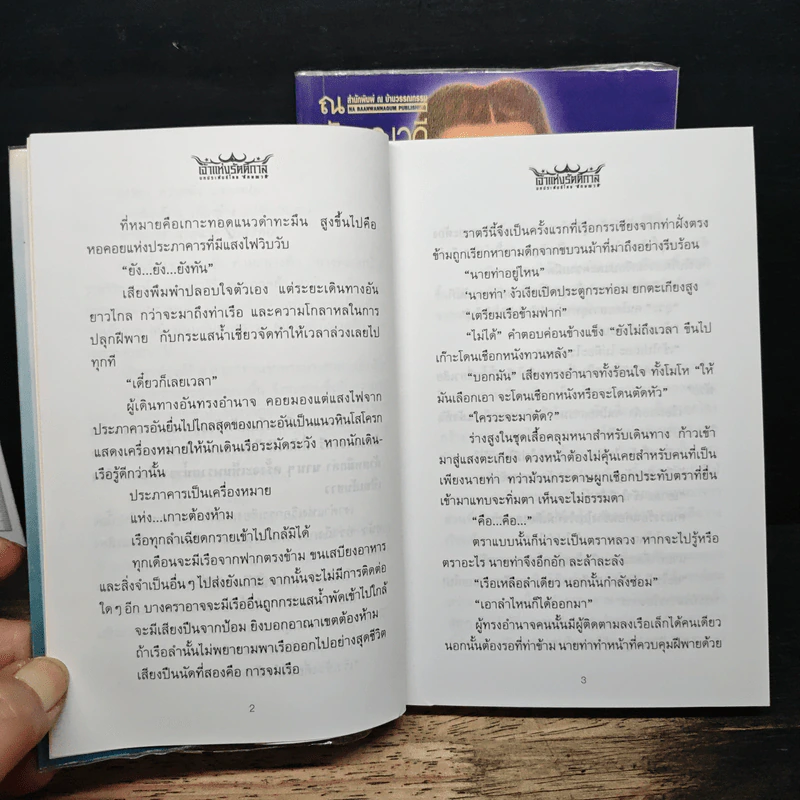 ณ สำนักพิมพ์ ณ บ้านวรรณกรรม
NA BAANWANNAGUM PUBLISHING
เจ้าแห่งรัตติกาล
ที่หมายคือเกาะทอดแนวดำทะมึน สูงขึ้นไปคือ
หอคอยแห่งประภาคารที่มีแสงไฟวิบวับ
“ยัง...ยัง...ยังทัน”
เสียงพึมพำปลอบใจตัวเอง แต่ระยะเดินทางอัน
ยาวไกล กว่าจะมาถึงท่าเรือ และความโกลาหลในการ
ปลุกฝีพาย กับกระแสน้ำเชี่ยวจัดทำให้เวลาล่วงเลยไป
ทุกที
“เดี๋ยวก็เลยเวลา”
ผู้เดินทางอันทรงอำนาจ คอยมองแต่แสงไฟจาก
ประภาคารอันยื่นไปไกลสุดของเกาะอันเป็นแนวหินโสโครก
แสดงเครื่องหมายให้นักเดินเรือระมัดระวัง หากนักเดิน-
เรือรู้ดีกว่านั้น
ประภาคารเป็นเครื่องหมาย
แห่ง...เกาะต้องห้าม
เรือทุกลำเฉียดกรายเข้าไปใกล้มิได้
ทุกเดือนจะมีเรือจากฟากตรงข้าม ขนเสบียงอาหาร
และสิ่งจำเป็นอื่นๆ ไปส่งยังเกาะ จากนั้นจะไม่มีการติดต่อ
ใดๆ อีก บางคราอาจจะมีเรืออื่นถูกกระแสน้ำพัดเข้าไปใกล้
จะมีเสียงปืนจากป้อม ยิงบอกอาณาเขตต้องห้าม
ถ้าเรือลำนั้นไม่พยายามพาเรือออกไปอย่างสุดชีวิต
เสียงปืนนัดที่สองคือ การจมเรือ
2
เจ้าแห่งรัตติกาล
ราตรีนี้จึงเป็นครั้งแรกที่เรือกรรเชียงจากท่าฝั่งตรง
ข้ามถูกเรียกหายามดึกจากขบวนม้าที่มาถึงอย่างรีบร้อน
“นายท่าอยู่ไหน”
‘นายท่า’ งัวเงียเปิดประตูกระท่อม ยกตะเกียงสูง
“เตรียมเรือข้ามฟาก”
“ไม่ได้” คำตอบค่อนข้างแข็ง “ยังไม่ถึงเวลา ขืนไป
เก๊าะโดนเชือกหนังทวนหลัง”
“บอกมัน” เสียงทรงอำนาจทั้งร้อนใจ ทั้งโมโห “ให้
มันเลือกเอา จะโดนเชือกหนังหรือจะโดนตัดหัว”
“ใครวะจะมาตัด?”
ร่างสูงในชุดเสื้อคลุมหนาสำหรับเดินทาง ก้าวเข้า
มาสู่แสงตะเกียง ดวงหน้าต้องไม่คุ้นเคยสำหรับคนที่เป็น
เพียงนายท่า ทว่าม้วนกระดาษผูกเชือกประทับตราที่ยื่น
เข้ามาแทบจะทิ่มตา เห็นจะไม่ธรรมดา
“คือ...คือ...”
ตราแบบนั้นก็น่าจะเป็นตราหลวง หากจะไปรู้หรือ
ตราอะไร นายท่าจึงอึกอัก ละล้าละลัง
“เรือเหลือลำเดียว นอกนั้นกำลังซ่อม”
“เอาลำไหนก็ได้ออกมา”
ผู้ทรงอำนาจคนนั้นมีผู้ติดตามลงเรือเล็กได้คนเดียว
นอกนั้นต้องรอที่ท่าข้าม นายท่าทำหน้าที่ควบคุมฝีพายด้วย
3